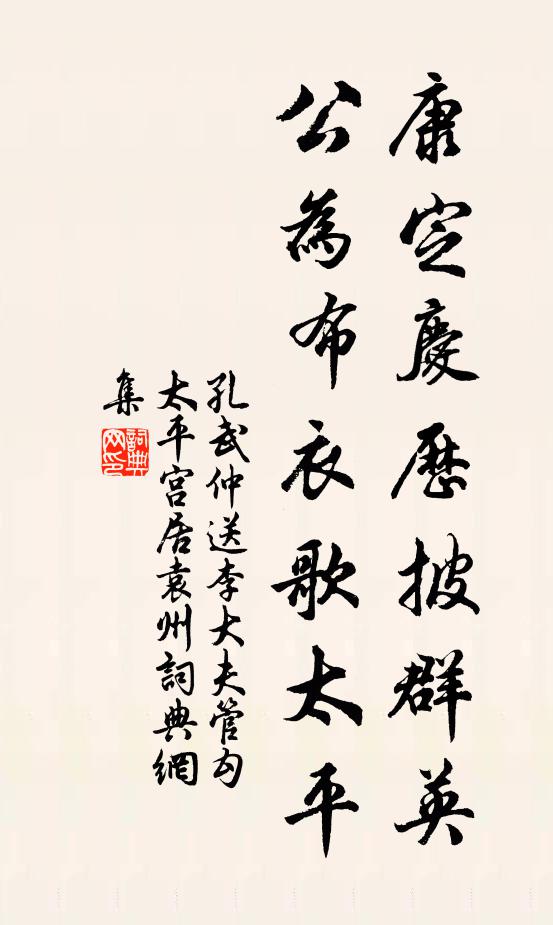 康定慶歷披群英
公為布衣歌太平
孔武仲送李大夫管勾
太平宮居袁州詞典網
集
詞典
网印